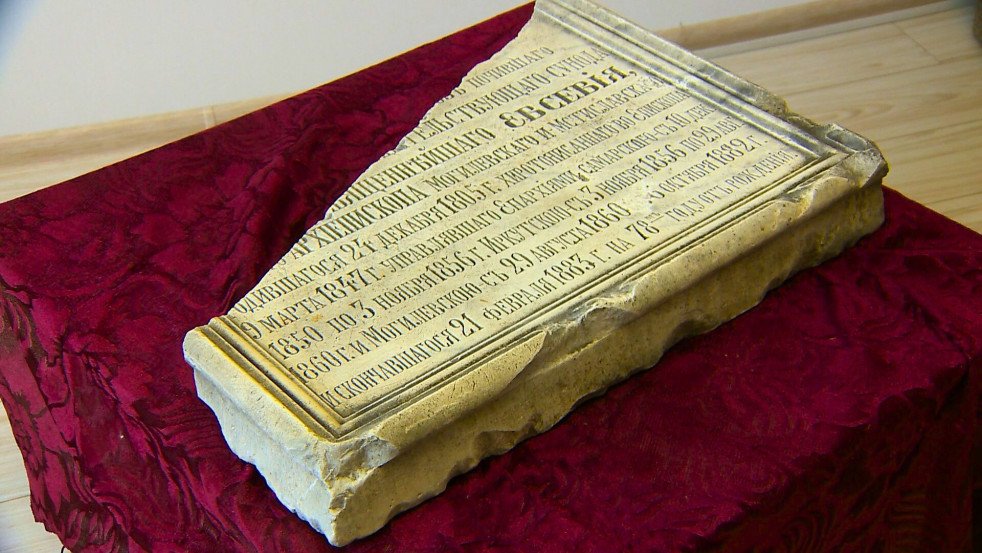 почившаго
ЕЛЬСТВУЮЩАГО СУНОДА
ОЩЕННѢЙШАГО ЕВСЕВІЯ,
АРХІЕПИСКОПА МОГИЛЕВСКАГО И МСТИСЛАВСКАГО
ОДИВШАГОСЯ 24 ДЕКАБРЯ 1805 Г. ХИРОТОНИСАННАГО ВО ЕПИСКОПА
9 МАРТА 1847 Г. УПРАВЛЯВШАГО ЕПАРХІЯМИ: САМАРСКОЮ СЪ
1850 ПО 3 НОЯБРЯ 1856 Г. ИРКУТСКОЮ СЪ 3 НОЯБРЯ 1856 ПО 29 АВГ.
1860 Г. И МОГИЛЕВСКОЮ СЪ 29 АВГУСТА 1860 ОКТЯБРЯ 1882 Г.
И СКОНЧАВШАГОСЯ 21 ФЕВРАЛЯ 1883 Г. НА 78МЪ ГОДУ ОТЪ РОЖДЕНІЯ